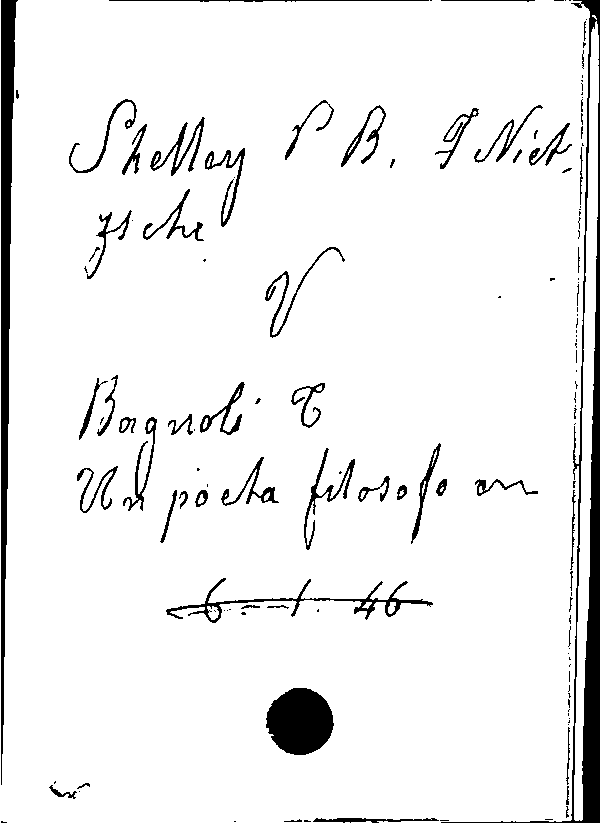 Shelley P B. F Niet-
zsche
V
Bagnoli E
Un poeta filosofo
6. 1. 46